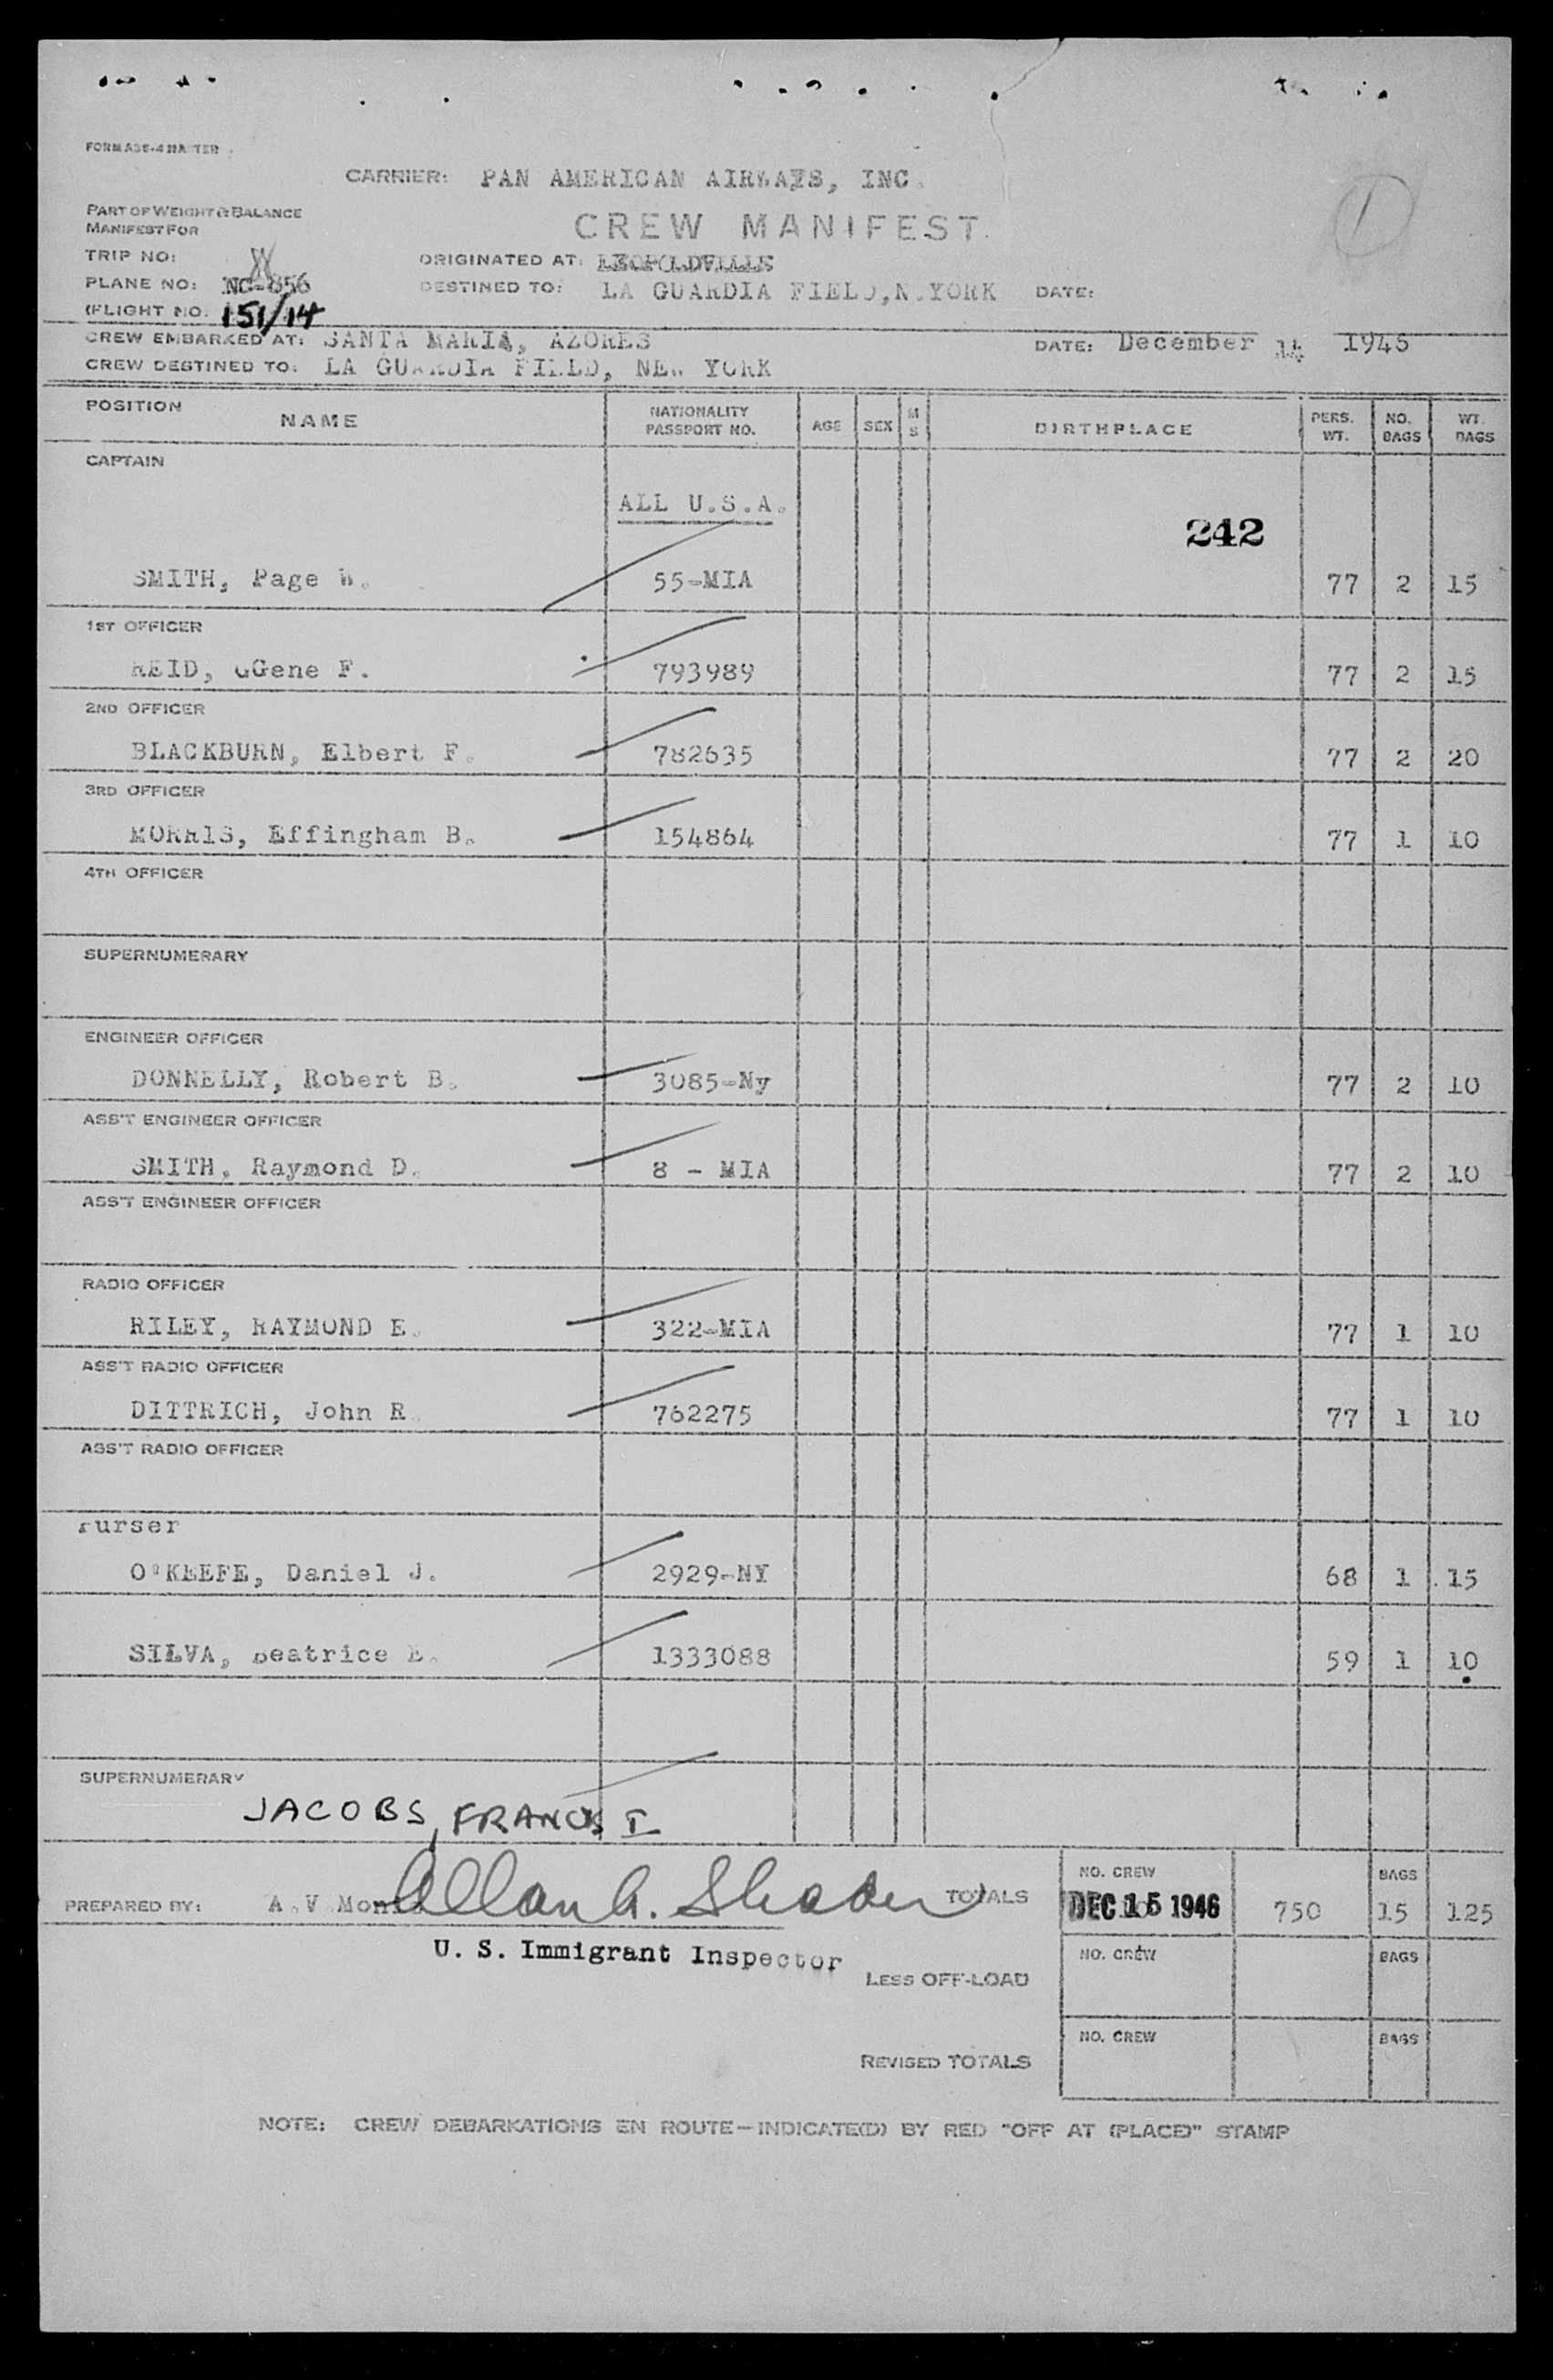 CARRIER: PAN AMERICAN AIRWAYS, INC.
PART OF WEIGHT & BALANCE
MANIFEST FOR
CREW MANIFEST.
TRIP NO:
ORIGINATED AT: LEOPOLDVILLE
PLANE NO: NC-856
DESTINED TO: LA GUARDIA FIELD, N.YORK DATE:
(FLIGHT NO: 151/14
CREW EMBARKED AT: SANTA MARIA, AZORES DATE: December 14 1946
CREW DESTINED TO: LA GUARDIA FIELD, NEW YORK
POSITION NAME NATIONALITY PASSPORT NO. AGE SEX M S BIRTHPLACE PERS. WT. NO. BAGS WT. BAGS
CAPTAIN
ALL U.S.A.
242
SMITH, Page W. 55-MIA 77 2 15
1ST OFFICER
REID, GGene F. 793989 77 2 15
2ND OFFICER
BLACKBURN, Elbert F. 782635 77 2 20
3RD OFFICER
MORRIS, Effingham B. 154864 77 1 10
4TH OFFICER
SUPERNUMERARY
ENGINEER OFFICER
DONNELLY, Robert B. 3085-Ny 77 2 10
ASS'T ENGINEER OFFICER
SMITH, Raymond D. 8 - MIA 77 2 10
ASS'T ENGINEER OFFICER
RADIO OFFICER
RILEY, RAYMOND E. 322-MIA 77 1 10
ASS'T RADIO OFFICER
DITTRICH, John R. 762275 77 1 10
ASS'T RADIO OFFICER
Purser
O'KEEFE, Daniel J. 2929-NY 68 1 15
SILVA, Beatrice E. 1333088 59 1 10
SUPERNUMERARY
JACOBS, FRANCIS I
PREPARED BY: A.V. Allan A. Shader TOTALS NO. CREW DEC 15 1946 750 BAGS 15 125
U. S. Immigrant Inspector
LESS OFF-LOAD NO. CREW BAGS
REVISED TOTALS NO. CREW BAGS
NOTE: CREW DEBARKATIONS EN ROUTE—INDICATE(D) BY RED "OFF AT (PLACE)" STAMP